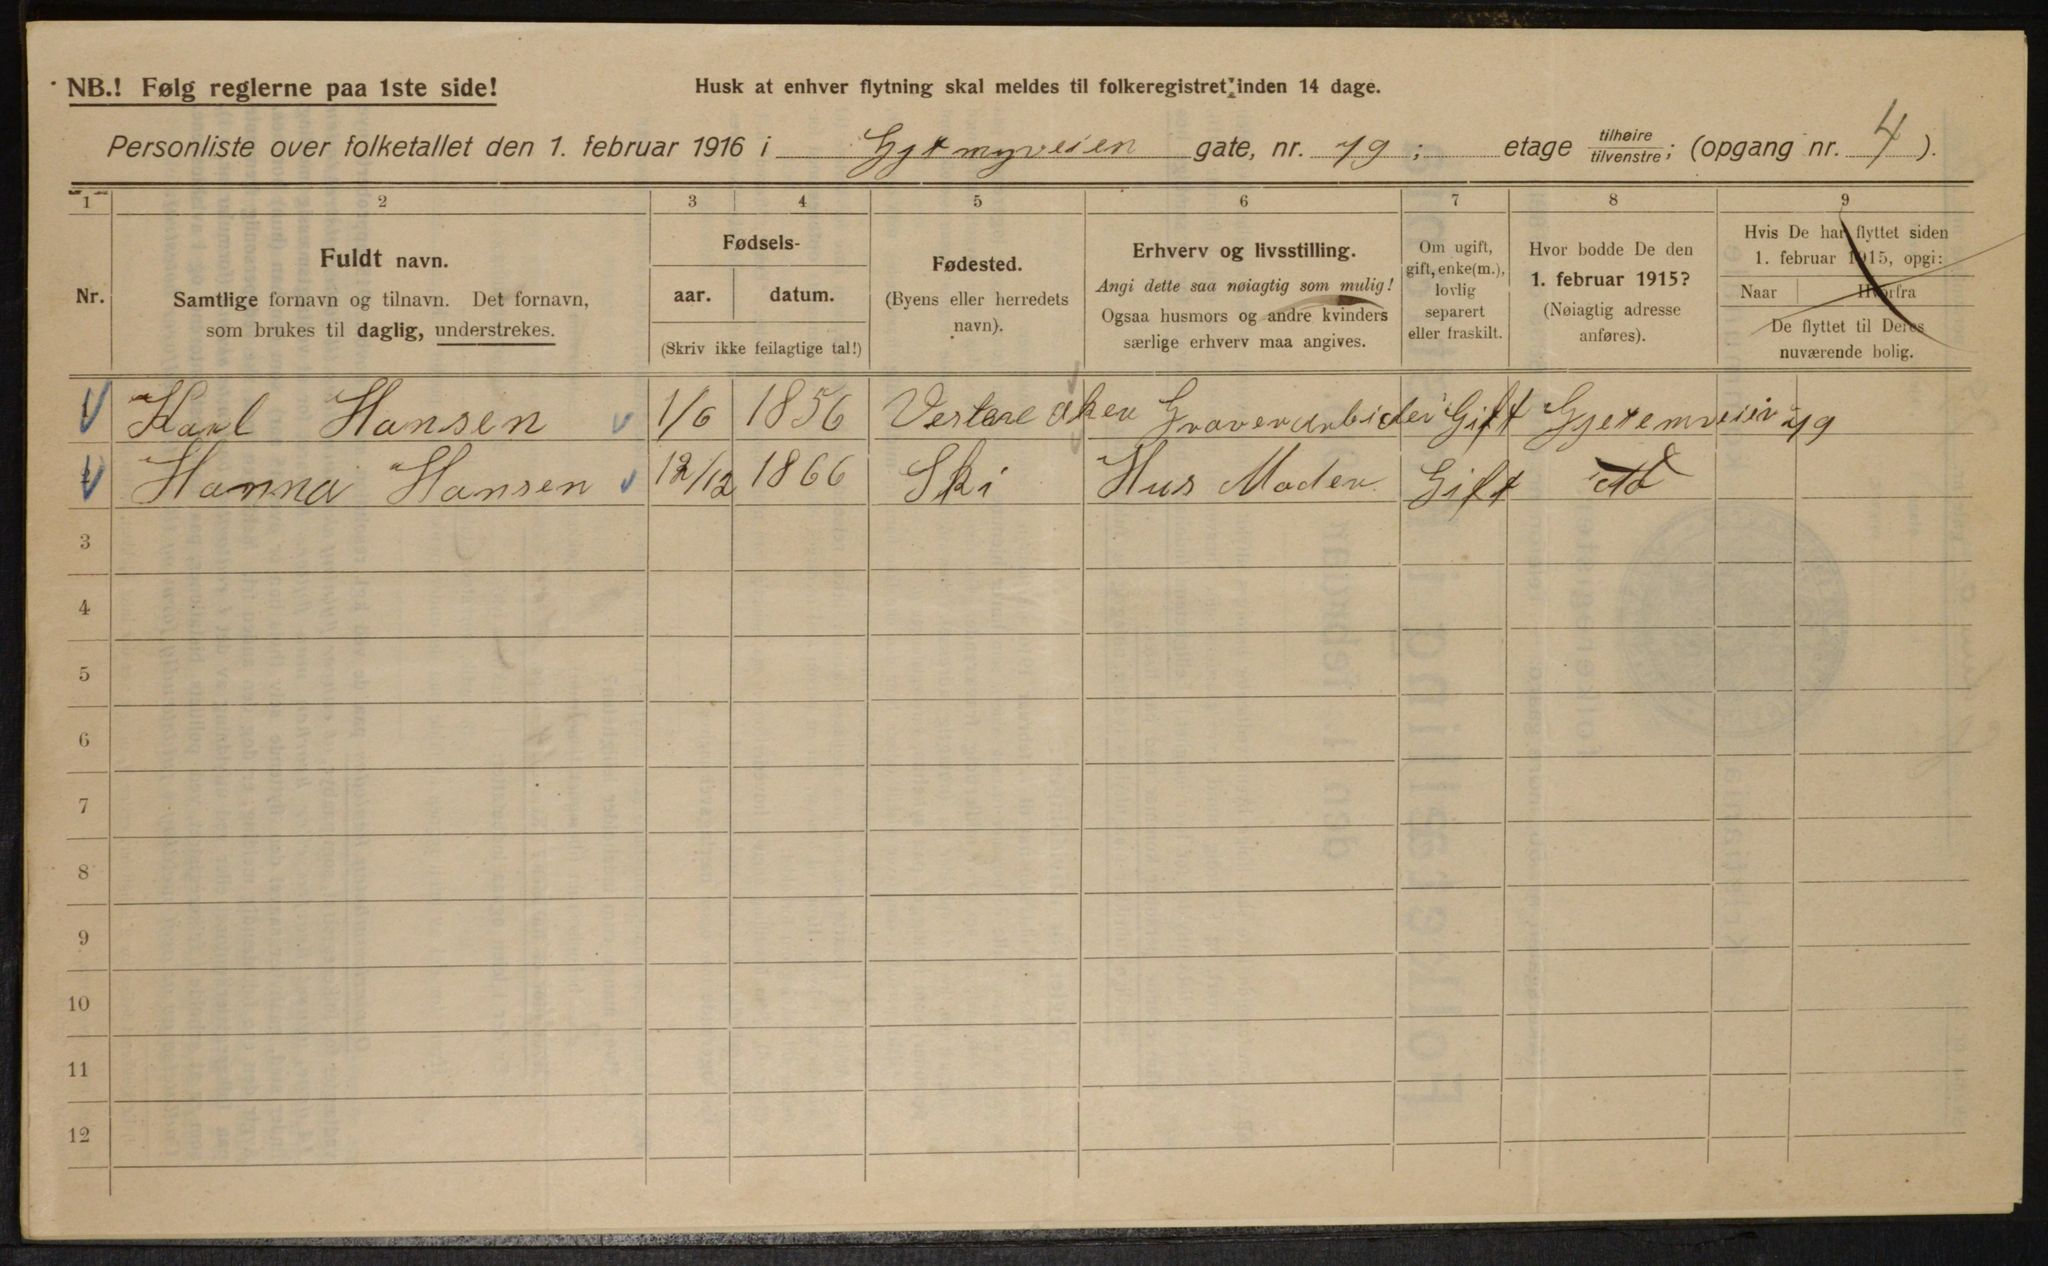 NB.! Følg reglerne paa 1ste side!
Husk at enhver flytning skal meldes til folkeregistret inden 14 dage.
Personliste over folketallet den 1. februar 1916 i Gjetmyrveien gate, nr. 79; etage tilhøire/tilvenstre; (opgang nr. 4).
1 2 3 4 5 6 7 8 9
Nr.
Fuldt navn.
Samtlige fornavn og tilnavn. Det fornavn,
som brukes til daglig, understrekes.
Fødsels-
aar. datum.
(Skriv ikke feilagtige tal!)
Fødested.
(Byens eller herredets
navn).
Erhverv og livsstilling.
Angi dette saa nøiagtig som mulig!
Ogsaa husmors og andre kvinders
særlige erhverv maa angives.
Om ugift,
gift, enke(m.),
lovlig
separert
eller fraskilt.
Hvor bodde De den
1. februar 1915?
(Nøiagtig adresse
anføres).
Hvis De har flyttet siden
1. februar 1915, opgi:
Naar Hvorfra
De flyttet til Deres
nuværende bolig.
Karl Hansen 1/6 1856 Vestere Aker Graverarbeider Gift Gjetemveien 79
Hanna Hansen 12/12 1866 Ski Hus Moder Gift
3
4
5
6
7
8
9
10
11
12